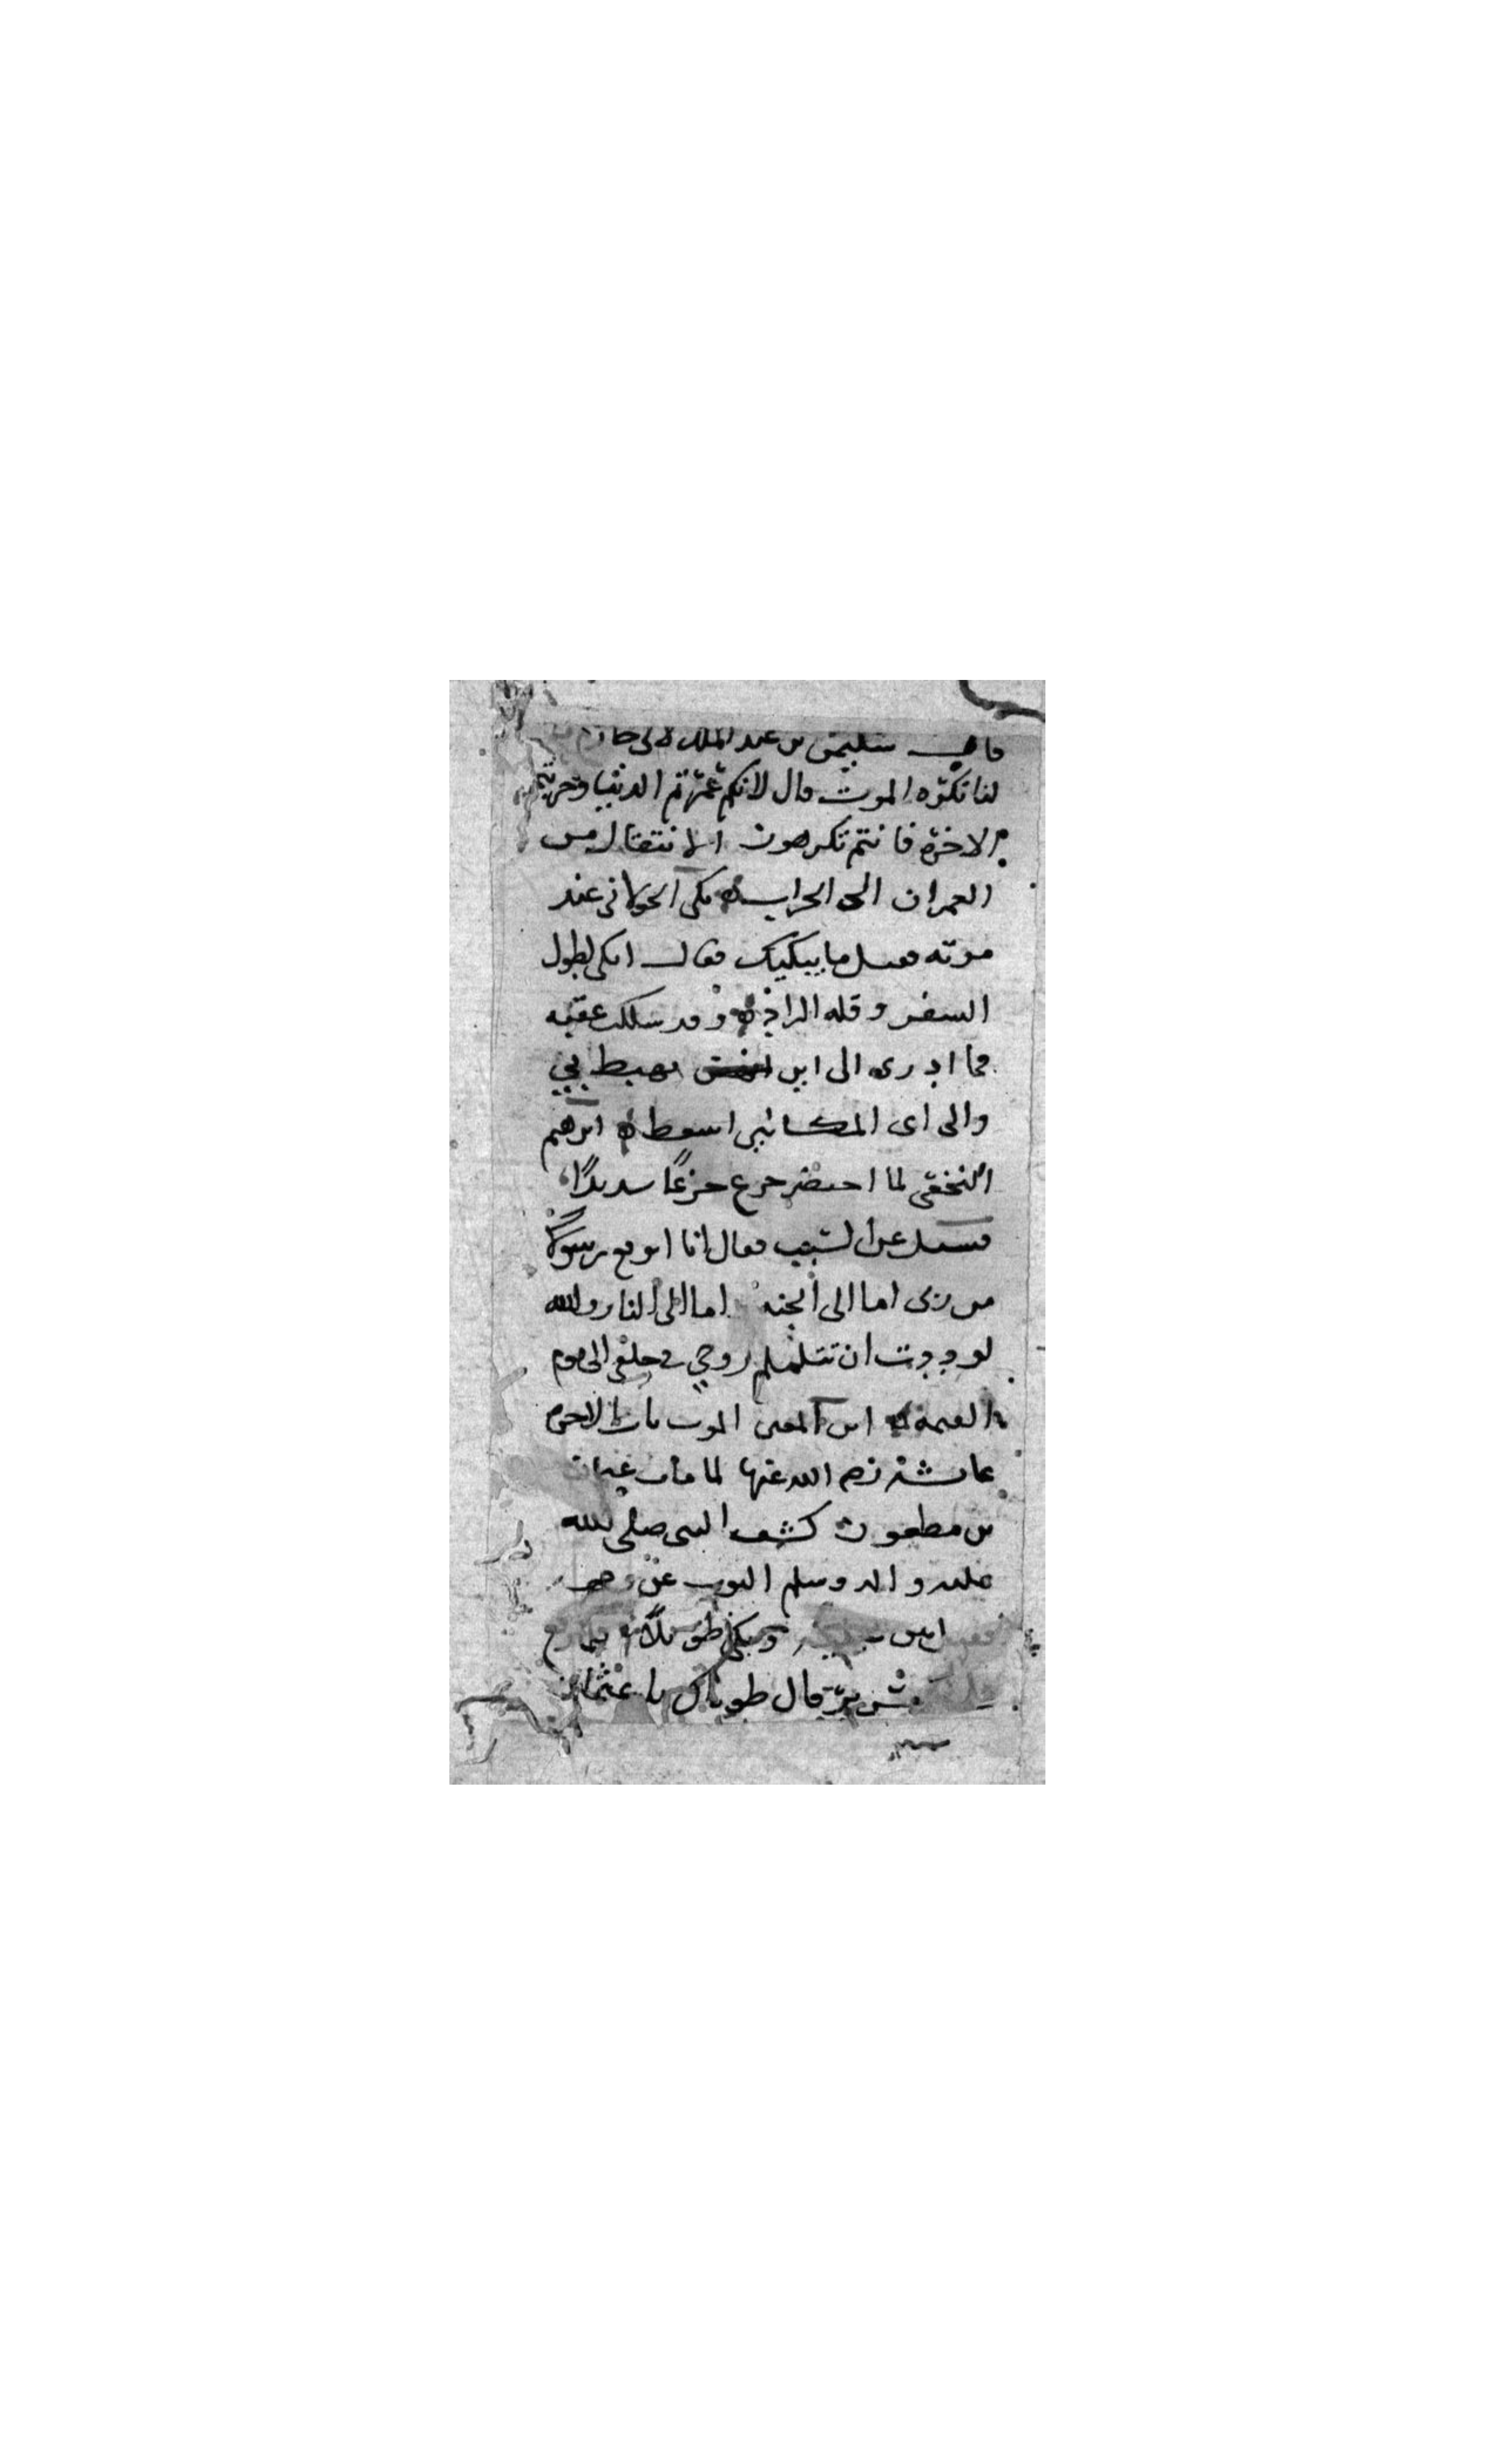 قال سليمن بن عبد الملك لابى حازم
لنا نكره الموت قال لانكم عمرتم الدنيا وخربتم
الاخرة فانتم تكرهون الانتقال من
العمران الى الخراب بكى الخولانى عند
موته فقيل ما يبكيك فقال ابكى لطول
السفر وقله الزاد وقد سلكت عقبه
فما ادرى الى اين يهبط بي
والى اى المكانين اسقط ابرهيم
النخعى لما احتضر جزع جزعًا شديدًا
فسئل عن السبب فقال انا اتوقع رسولًا
من ربى اما الى الجنه اما الى النار والله
لوددت ان تتلجلج روحي في حلقى الى يوم
القيمة ابن المعتز الموت باب الاخرة
عائشة رضى الله عنها لما مات عثمان
بن مظعون كشف النبى صلى الله
عليه واله وسلم الثوب عن وجهه
وبكى طويلًا فلما رفع
السرير قال طوباك يا عثمان